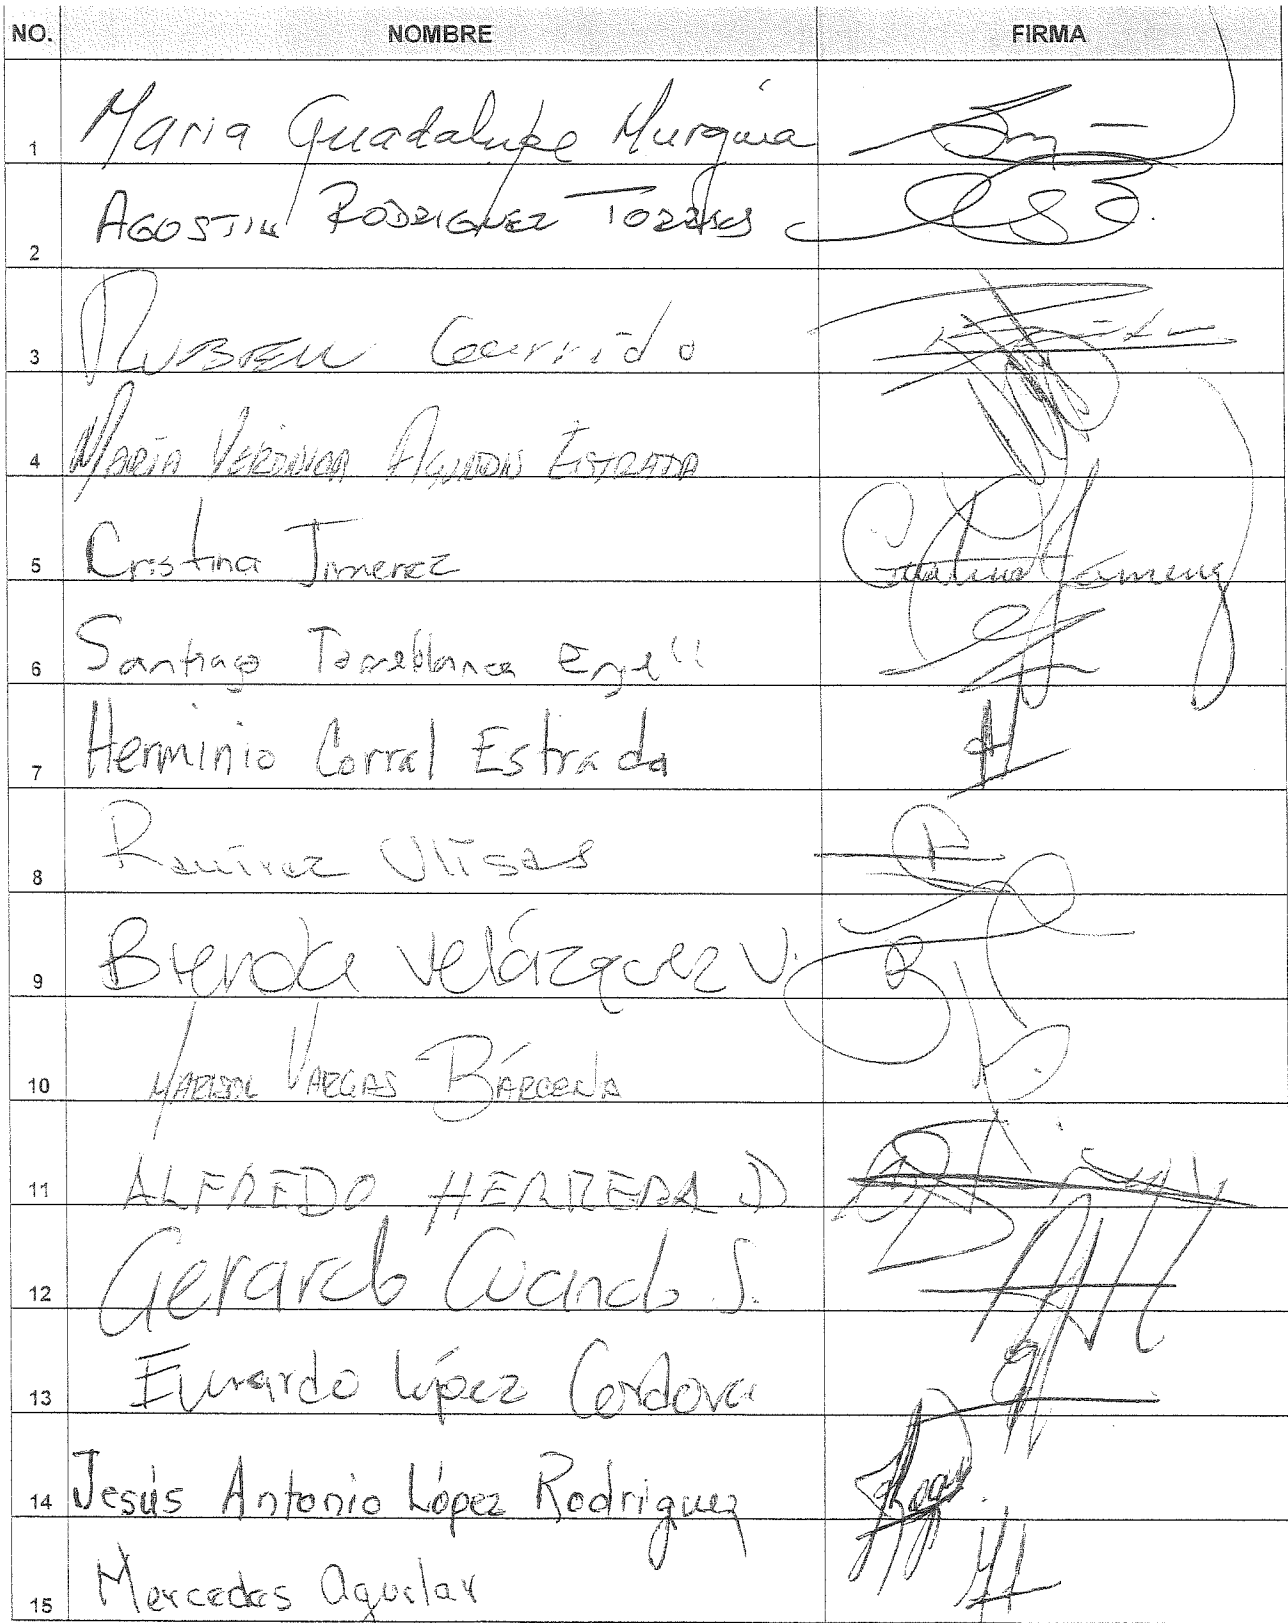 NO. NOMBRE FIRMA
1 Maria Guadalupe Murguia
2 AGOSTIN RODRIGUEZ TORRES
3 RUBEN Garrido
4 MARÍA VERÓNICA AGUNDIS ESTRADA
5 Cristina Jimenez
6 Santiago Torreblanca Engell
7 Herminio Corral Estrada
8 Ramirez Ulises
9 Brenda Velázquez V.
10 MARISOL VARGAS BÁRCENA
11 ALFREDO HERRERA D
12 Gerardo Cuando S.
13 López Cordova
14 Jesús Antonio López Rodriguez
15 Mercedes Aguilar